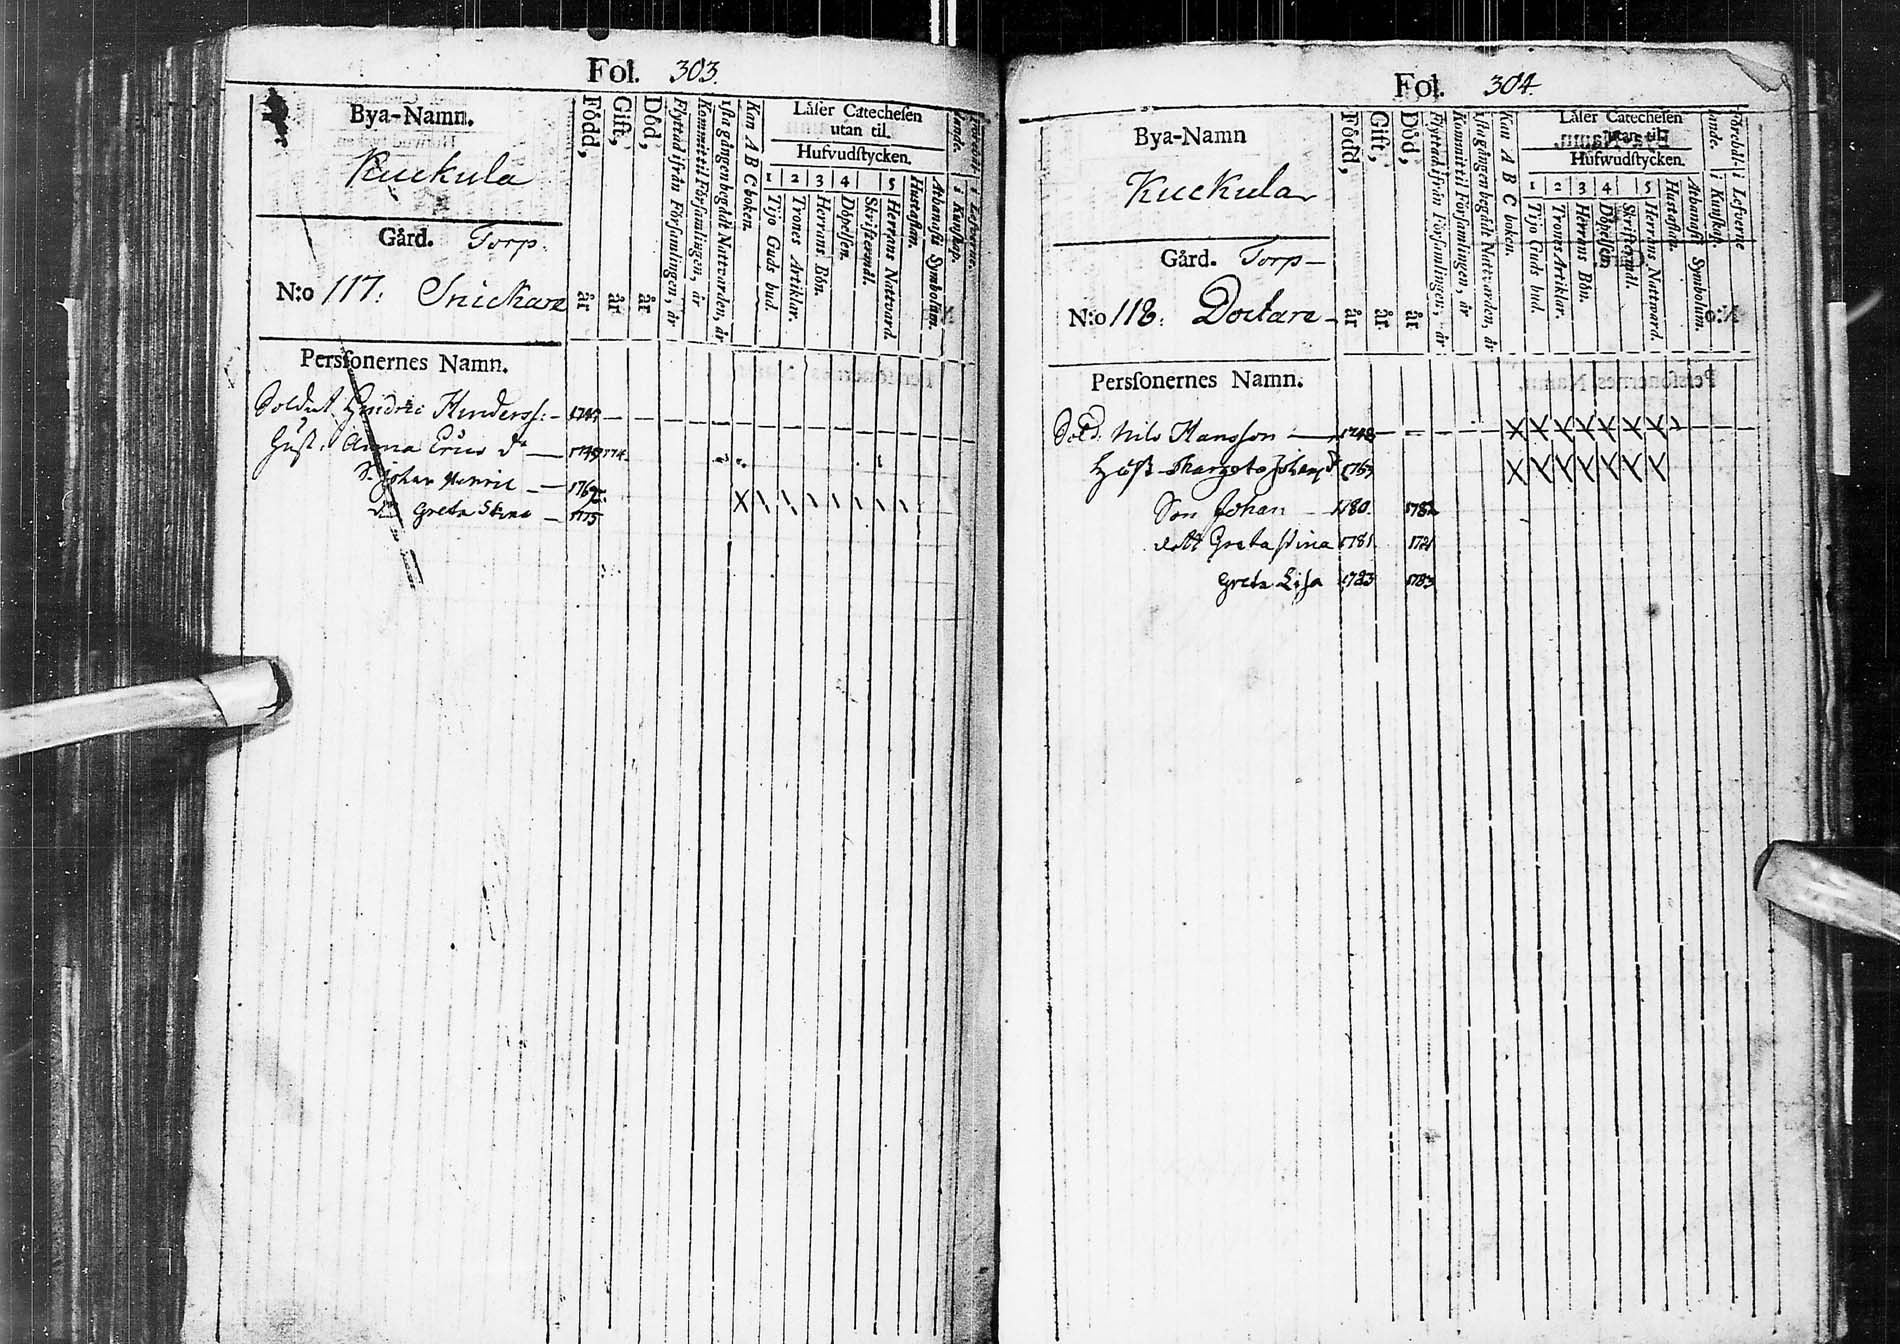 Fol. 303.
Bya-Namn.
Kuckula
Gård. Torp.
N:o 117. Snickare
Född, år
Gift, år
Död, år
Flyttad ifrån Församlingen, år
Kommit til Församlingen, år
1sta gången begådt Nattvarden, år
Kan A B C boken.
Läser Catechesen
utan til.
Hufvudstycken.
1 2 3 4 5
Tijo Guds bud.
Trones Artiklar.
Herrans Bön.
Döpelsen.
Skriftermål.
Herrans Nattvard.
Hustaflan.
Athanasii Symbolum.
i Kunskap.
i Lefverne.
Perssonernes Namn.
Soldat Hindric Hinderss:
Hust. Anna Erics dr 1749 774
S. Johan Henric
dr Greta Stina 1775
Fol. 304
Bya-Namn
Kuckula
Gård. Torp
N:o 118. Doctare
Född, år
Gift, år
Död, år
Flyttad ifrån Församlingen, år
Kommit til Församlingen, år
1sta gången begådt Nattvarden, år
Kan A B C boken.
Läser Catechesen
utan til.
Hufwudstycken.
1 2 3 4 5
Tijo Guds bud.
Trones Artiklar.
Herrans Bön.
Döpelsen
Skriftermål.
Herrans Nattvard.
Hustaflan.
Athanasii Symbolum.
i Kunskap.
i Lefverne
Perssonernes Namn.
Sold. Nils Hansson 1748 X X X X X X X
Hust Margeta Johans dr 1753 X X X X X X X
Son Johan 1780 1782
dott Greta Stina 1781
Greta Lisa 1783 1783